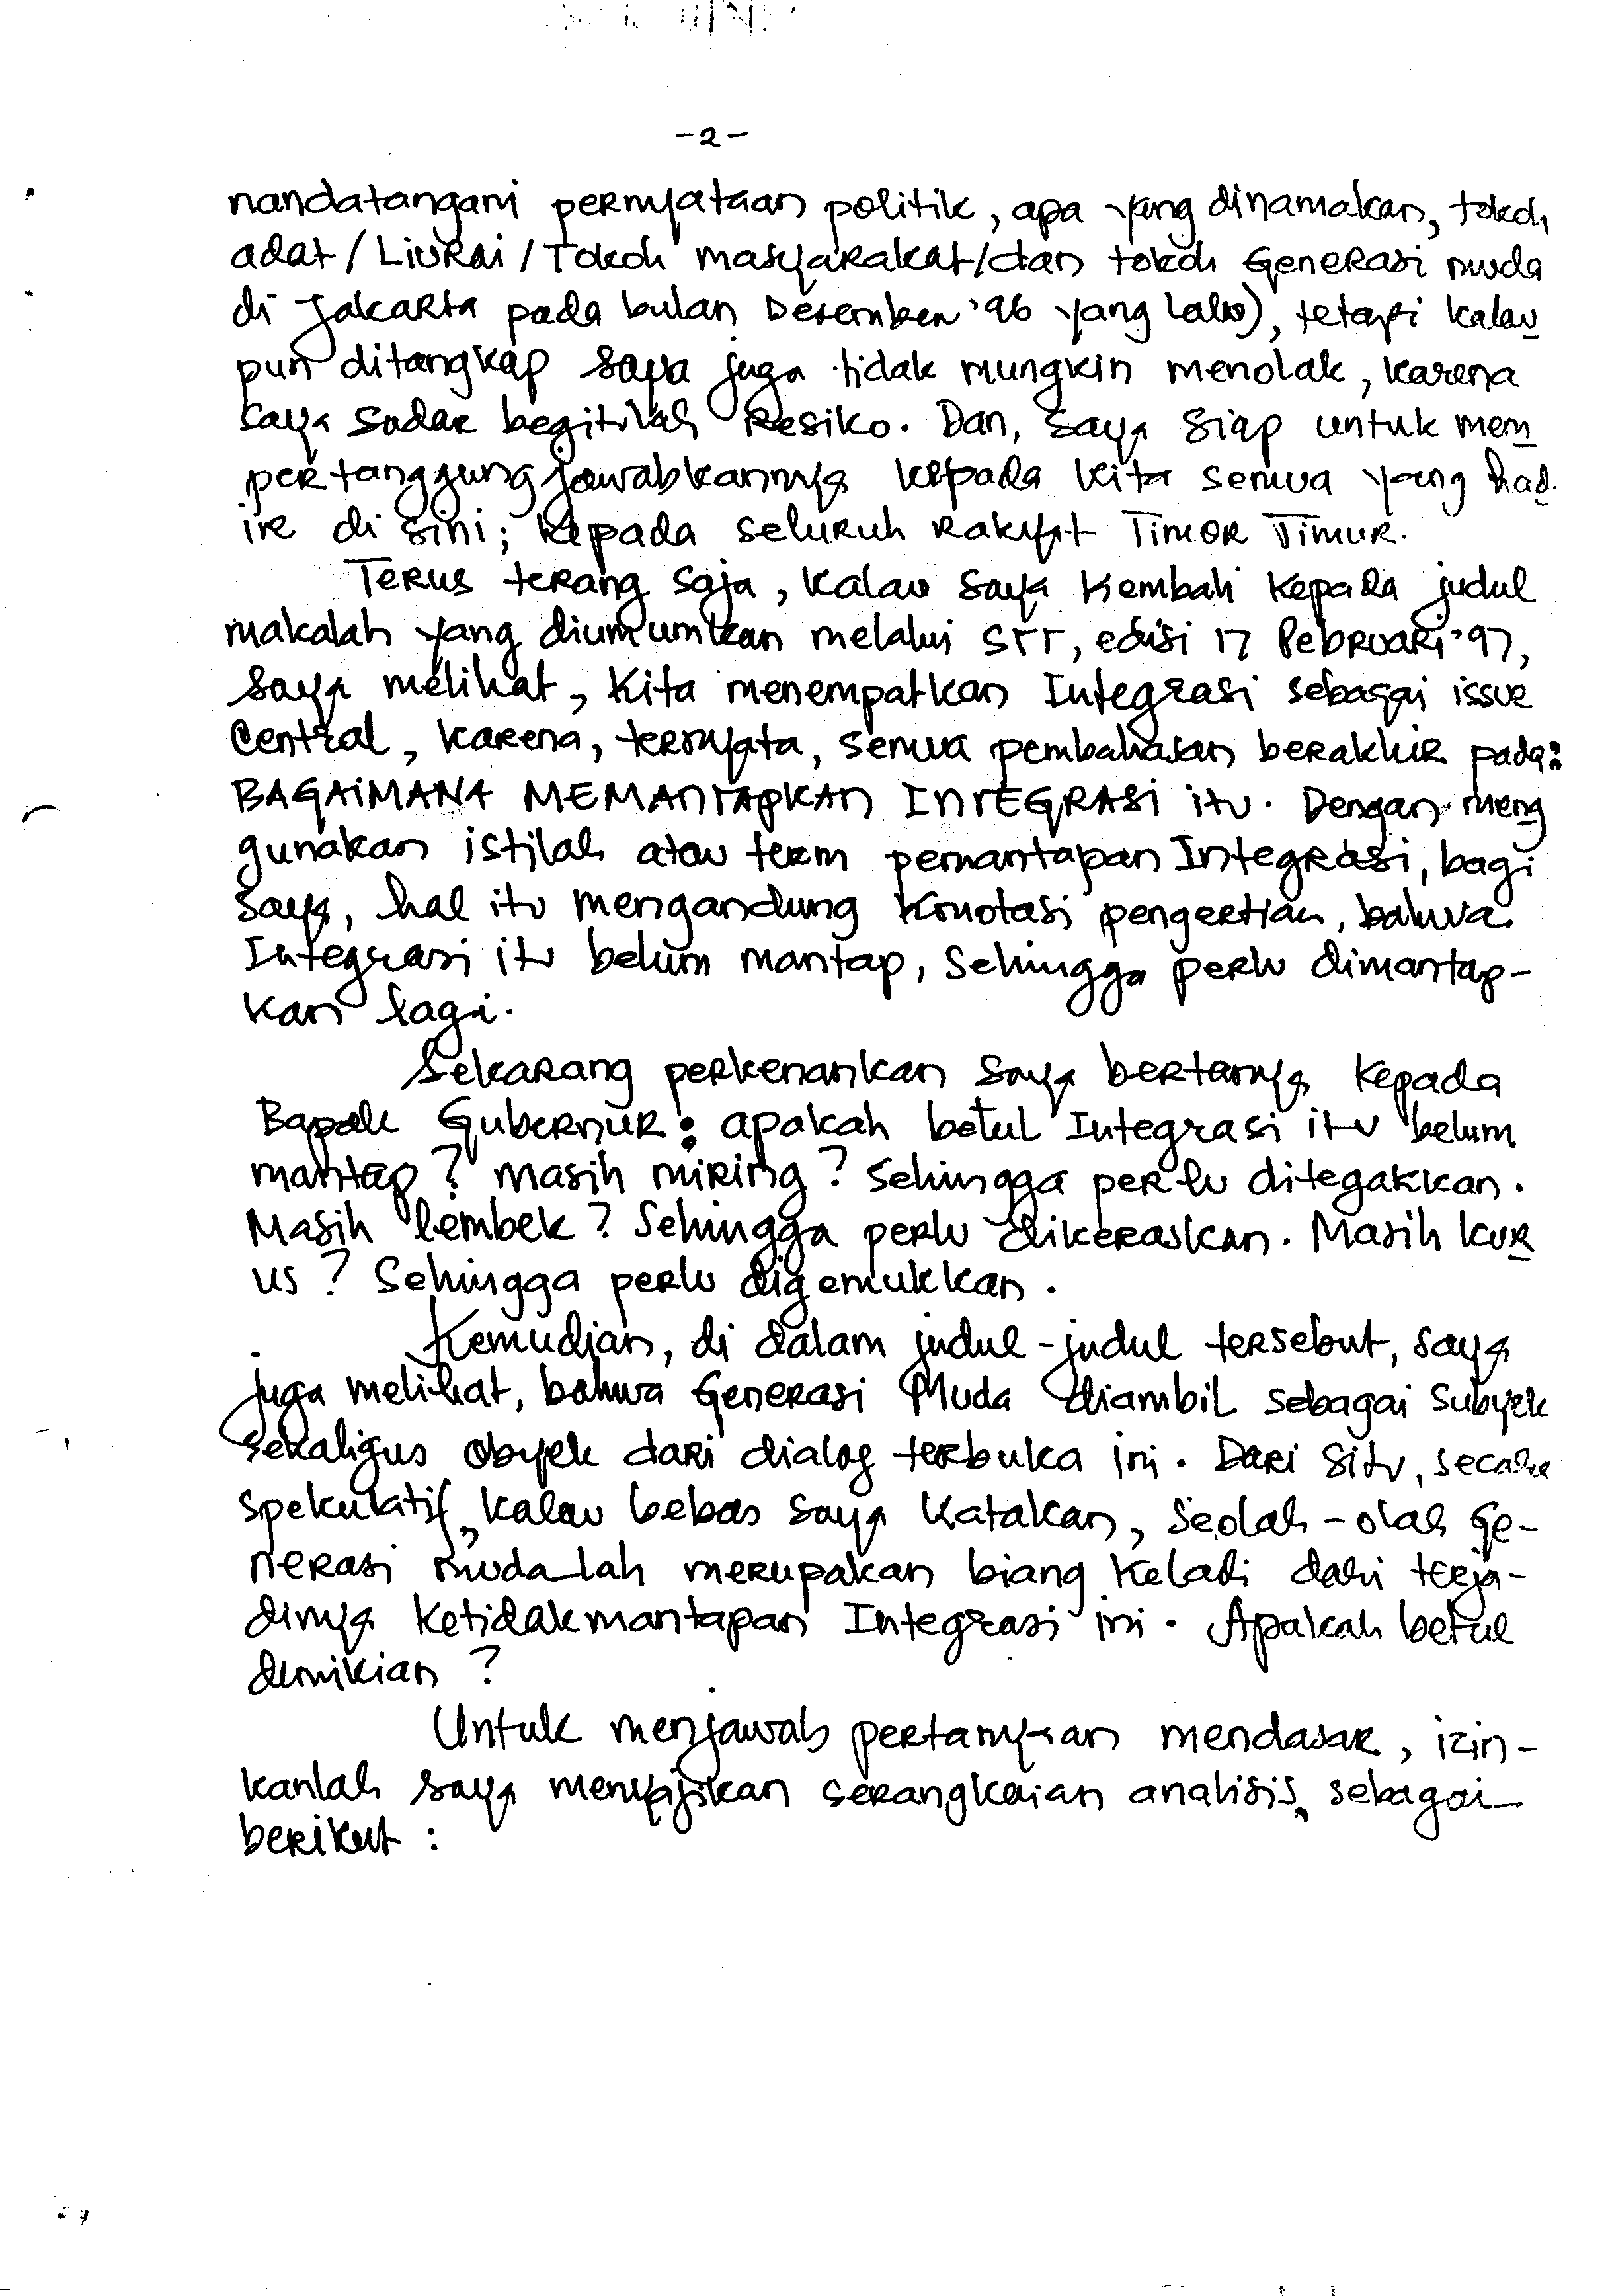 -2-
nandatangani pernyataan politik, apa yang dinamakan, tokoh
adat/Liurai/Tokoh masyarakat/dan tokoh Generasi muda
di Jakarta pada bulan Desember '96 yang lalu), tetapi kalau
pun ditangkap saya juga tidak mungkin menolak, karena
saya sadar begitulah Resiko. Dan, saya siap untuk mem
pertanggung jawabkannya kepada kita semua yang had
ir di sini; kepada seluruh rakyat Timor Timur.
Terus terang saja, kalau saya kembali kepada judul
makalah yang diumumkan melalui STT, edisi 17 Pebruari '97,
saya melihat, kita menempatkan Integrasi sebagai issue
Central, karena, ternyata, semua pembahasan berakhir pada:
BAGAIMANA MEMANTAPKAN INTEGRASI itu. Dengan meng
gunakan istilah atau term pemantapan Integrasi, bagi
saya, hal itu mengandung konotasi pengertian, bahwa
Integrasi itu belum mantap, sehingga perlu dimantap-
kan lagi.
Sekarang perkenankan saya bertanya kepada
Bapak Gubernur: apakah betul Integrasi itu belum
mantap? Masih miring? Sehingga perlu ditegakkan.
Masih lembek? Sehingga perlu dikeraskan. Masih kur
us? Sehingga perlu digemukkan.
Kemudian, di dalam judul-judul tersebut, saya
juga melihat, bahwa Generasi Muda diambil sebagai subyek
sekaligus obyek dari dialog terbuka ini. Dari situ, secara
spekulatif, kalau bebas saya katakan, seolah-olah Ge-
nerasi muda-lah merupakan biang keladi dari terja-
dinya ketidakmantapan Integrasi ini. Apakah betul
demikian?
Untuk menjawab pertanyaan mendasar, izin-
kanlah saya menyajikan serangkaian analisis, sebagai
berikut: